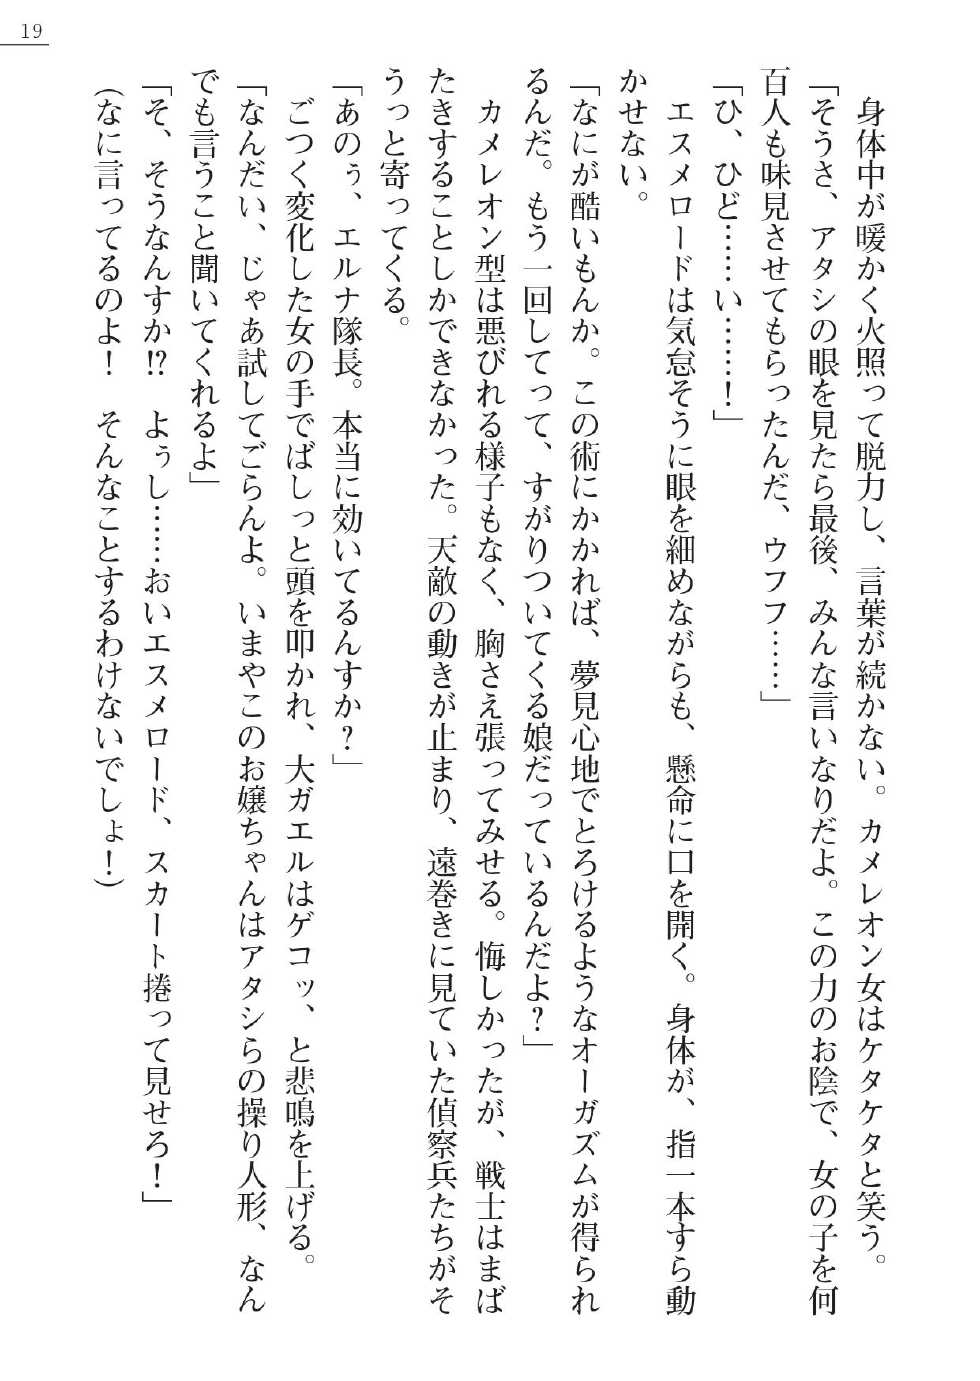 19
身体中が暖かく火照って脱力し、言葉が続かない。カメレオン女はケタケタと笑う。
「そうさ、アタシの眼を見たら最後、みんな言いなりだよ。この力のお陰で、女の子を何
百人も味見させてもらったんだ、ウフフ……」
「ひ、ひど……い……！」
エスメロードは気怠そうに眼を細めながらも、懸命に口を開く。身体が、指一本すら動
かせない。
「なにが酷いもんか。この術にかかれば、夢見心地でとろけるようなオーガズムが得られ
るんだ。もう一回してって、すがりついてくる娘だっているんだよ？」
カメレオン型は悪びれる様子もなく、胸さえ張ってみせる。悔しかったが、戦士はまば
たきすることしかできなかった。天敵の動きが止まり、遠巻きに見ていた偵察兵たちがそ
うっと寄ってくる。
「あのぅ、エルナ隊長。本当に効いてるんすか？」
ごつく変化した女の手でばしっと頭を叩かれ、大ガエルはゲコッ、と悲鳴を上げる。
「なんだい、じゃあ試してごらんよ。いまやこのお嬢ちゃんはアタシらの操り人形、なん
でも言うこと聞いてくれるよ」
「そ、そうなんすか!?　よぅし……おいエスメロード、スカート捲って見せろ！」
（なに言ってるのよ！　そんなことするわけないでしょ！）